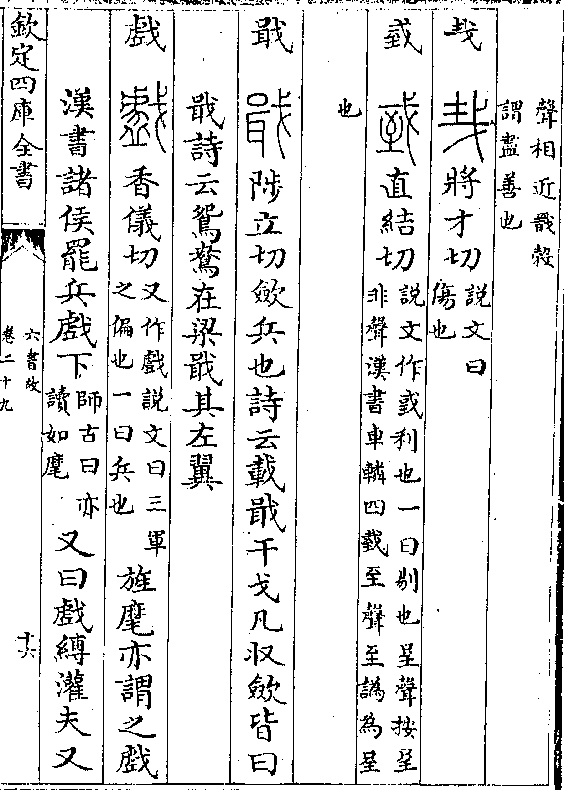 聲相近戩穀
謂盡善也
𢦏 將才切說文曰
傷也
臷 直結切說文作戜利也一曰剔也呈聲按呈
非聲漢書車轔四臷至聲至譌為呈
也
戢 陟立切歛兵也詩云載戢干戈凡収歛皆曰
戢詩云鴛鴦在梁戢其左翼
戲 香儀切又作戲說文曰三軍
之偏也一曰兵也
旌麾亦謂之戲
漢書諸侯罷兵戲下師古曰亦
讀如麾
又曰戲縛灌夫又
欽定四庫全書
六書故
卷二十九
十六